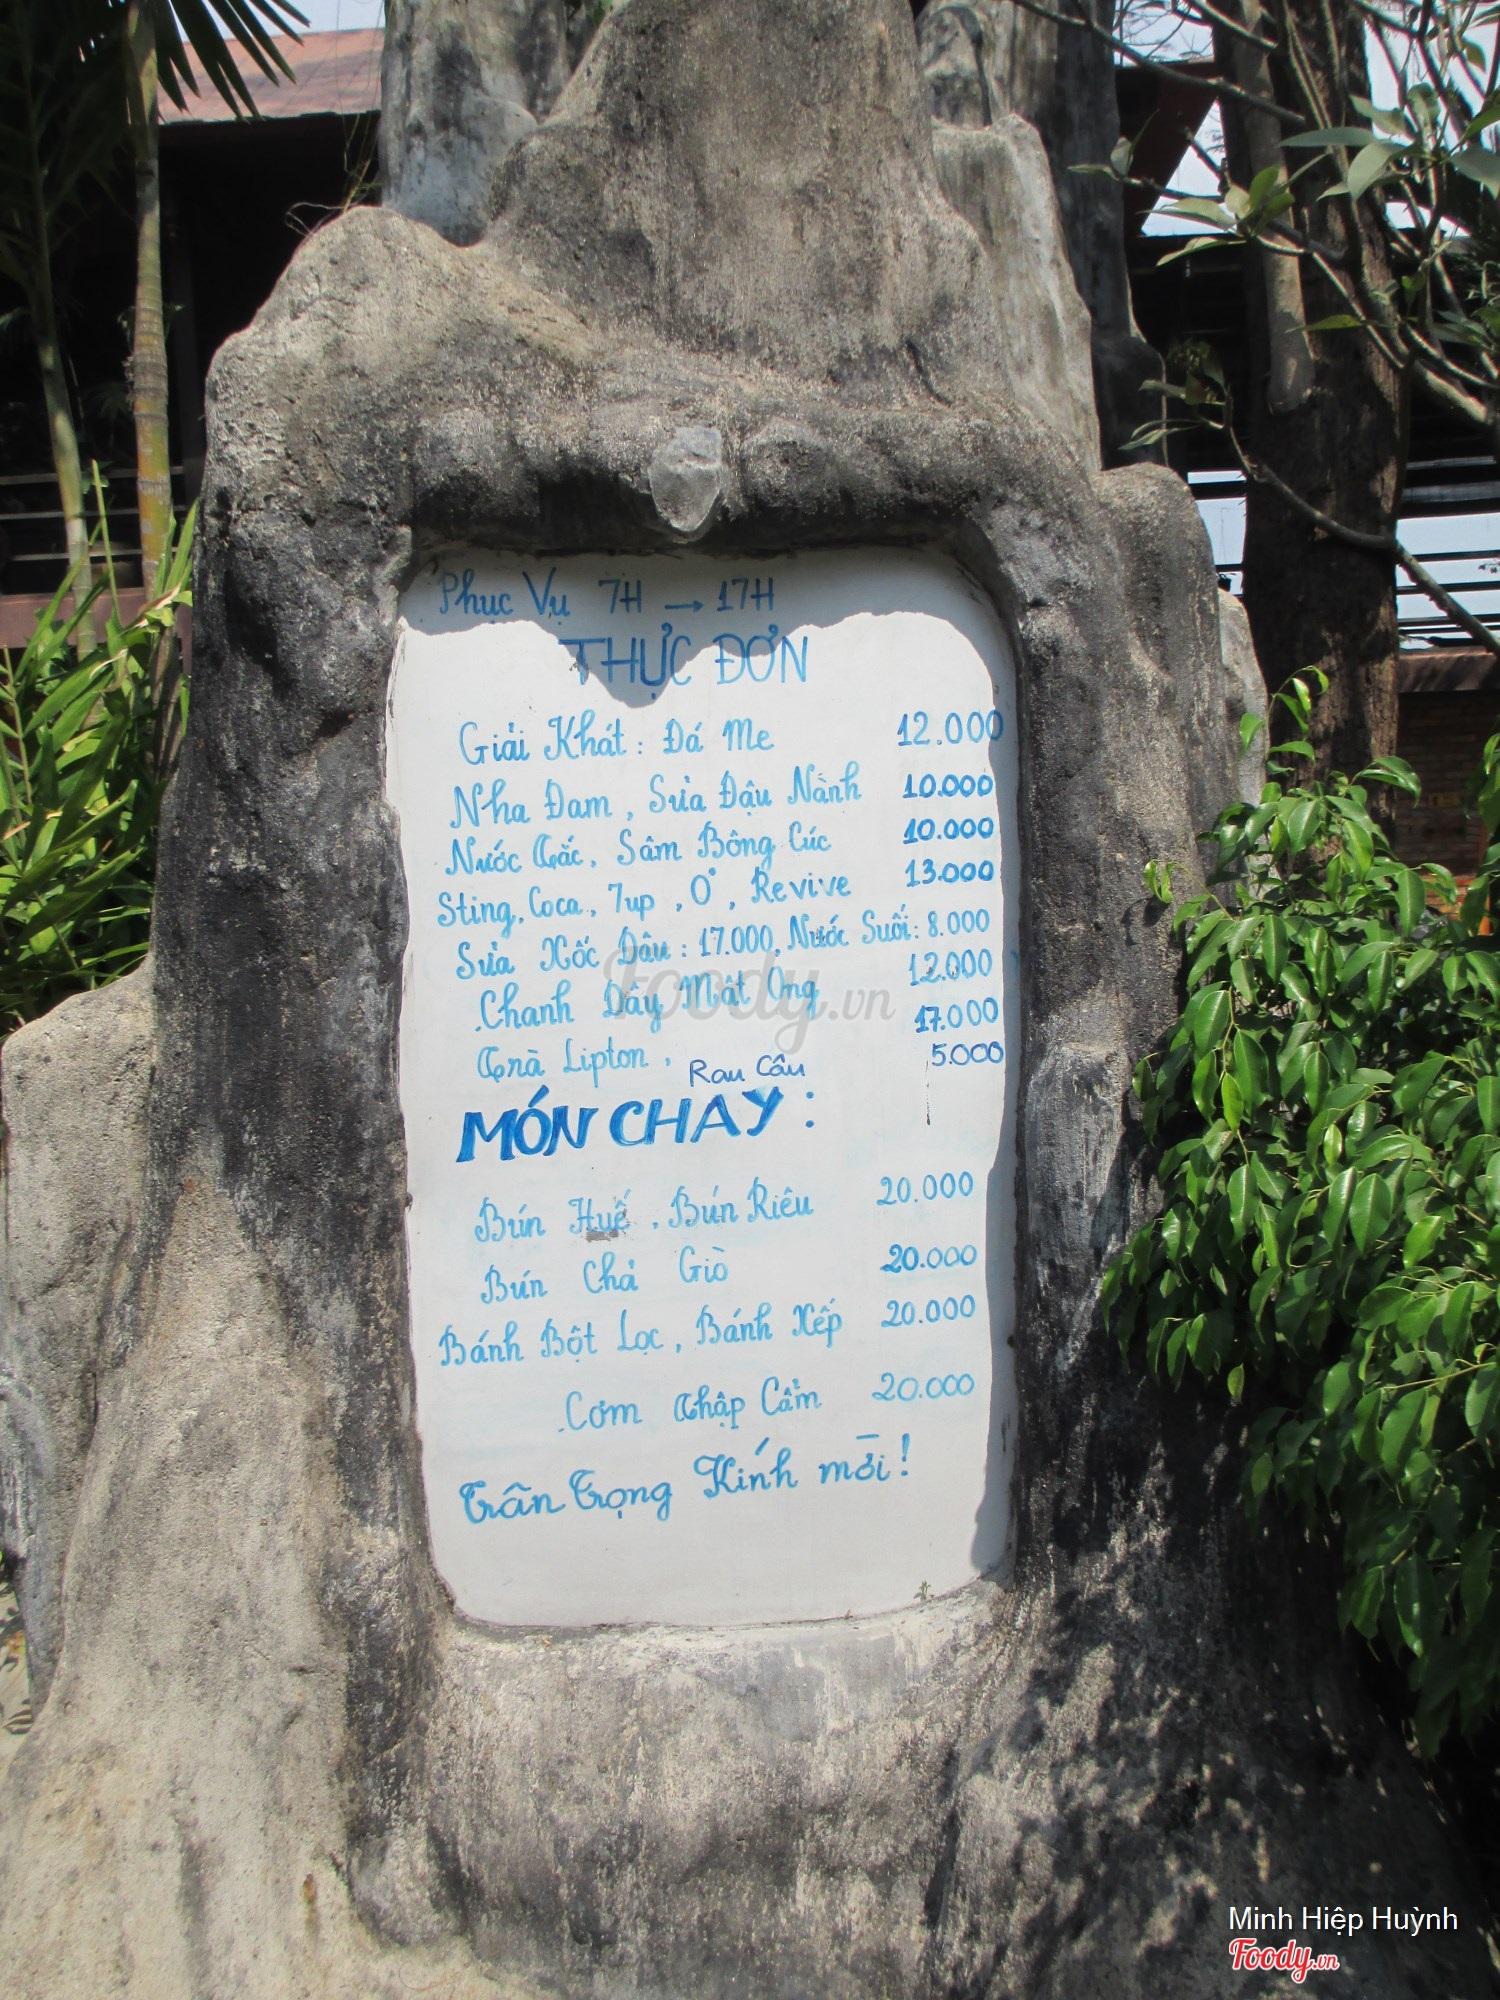 Phục Vụ 7H → 17H
THỰC ĐƠN
Giải Khát : Đá Me 12.000
Nha Đam , Sữa Đậu Nành 10.000
Nước Gấc, Sâm Bông Cúc 10.000
Sting, Coca, 7up , O° , Revive 13.000
Sữa Xốc Dâu : 17.000, Nước Suối : 8.000
Chanh Dây Mật Ong 12.000
Trà Lipton , 17.000
Rau Câu 5.000
MÓN CHAY :
Bún Huế , Bún Riêu 20.000
Bún Chả Giò 20.000
Bánh Bột Lọc , Bánh Xếp 20.000
Cơm Thập Cẩm 20.000
Trân Trọng Kính mời !
Foody.vn
Minh Hiệp Huỳnh
Foody.vn